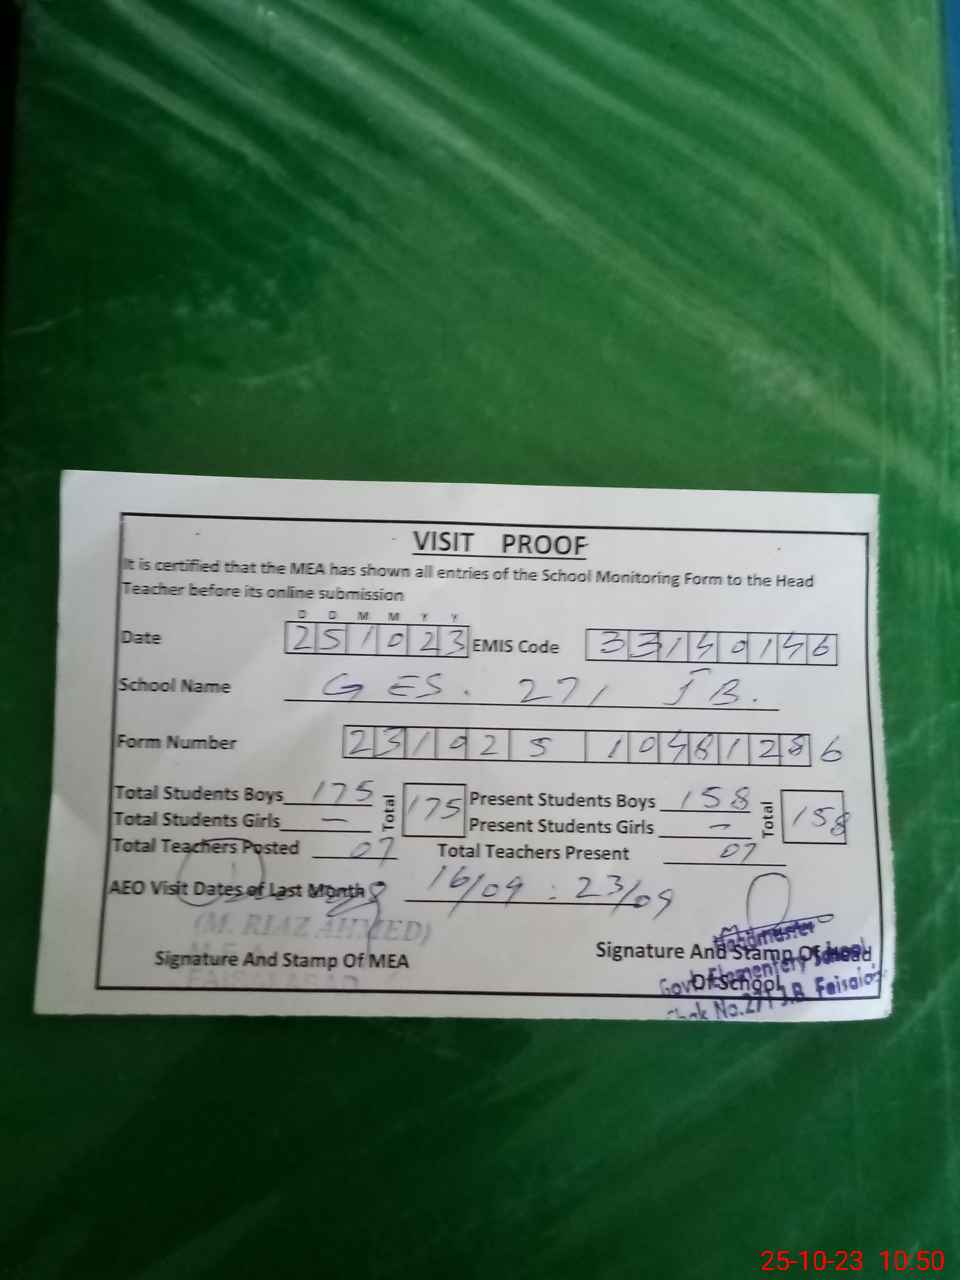 VISIT PROOF
It is certified that the MEA has shown all entries of the School Monitoring Form to the Head
Teacher before its online submission
D D M M Y Y
Date 251023 EMIS Code 33140146
School Name GES. 271 JB.
Form Number 231925 10481286
Total Students Boys 175 Total 175 Present Students Boys 158 Total 158
Total Students Girls — Present Students Girls —
Total Teachers Posted 07 Total Teachers Present 07
AEO Visit Dates of Last Month 16/09 : 23/09
(M. RIAZ AHMED)
M.E.A
FAISALABAD
Signature And Stamp Of MEA
Signature And Stamp Of Head
Of School
Headmaster
Govt. Elementery School
Chak No.271 J.B Faisala
25-10-23 10:50